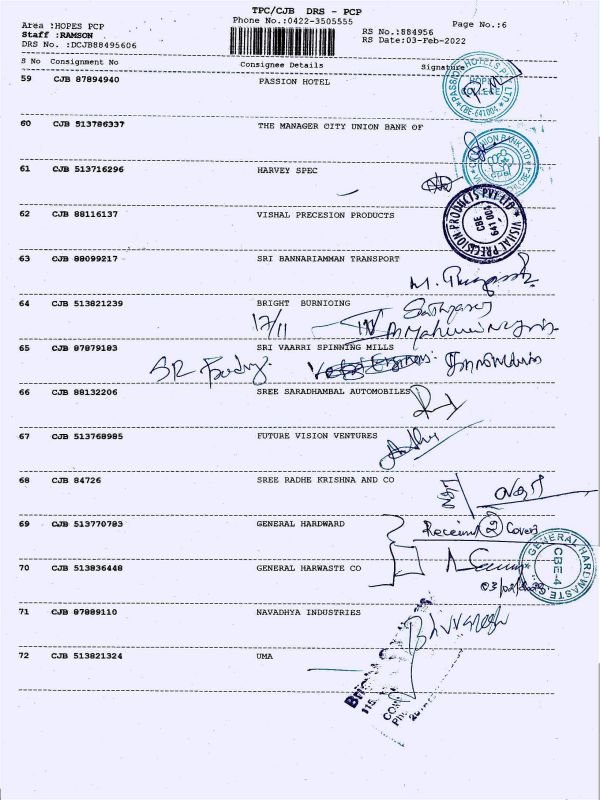 TPC/CJB DRS - PCP
Area :HOPES PCP
Phone No.:0422-3505555
Page No.:6
Staff :RAMSON
RS No.:884956
DRS No. :DCJB88495606
RS Date:03-Feb-2022
S No Consignment No Consignee Details Signature
59 CJB 87894940 PASSION HOTEL
PASSION HOTELS PVT LTD
HOPE COLLEGE
CBE-641004
60 CJB 513786337 THE MANAGER CITY UNION BANK OF
61 CJB 513716296 HARVEY SPEC
62 CJB 88116137 VISHAL PRECESION PRODUCTS
VISHAL PRECISION PRODUCTS PVT LTD
CBE
641 004
63 CJB 88099217 SRI BANNARIAMMAN TRANSPORT
64 CJB 513821239 BRIGHT BURNIOING
17/11
65 CJB 87879183 SRI VAARRI SPINNING MILLS
66 CJB 88132206 SREE SARADHAMBAL AUTOMOBILES
67 CJB 513768985 FUTURE VISION VENTURES
68 CJB 84726 SREE RADHE KRISHNA AND CO
69 CJB 513770783 GENERAL HARDWARD
2 Covers
GENERAL HARDWASTE
CBE-4
70 CJB 513836448 GENERAL HARWASTE CO
71 CJB 87889110 NAVADHYA INDUSTRIES
72 CJB 513821324 UMA